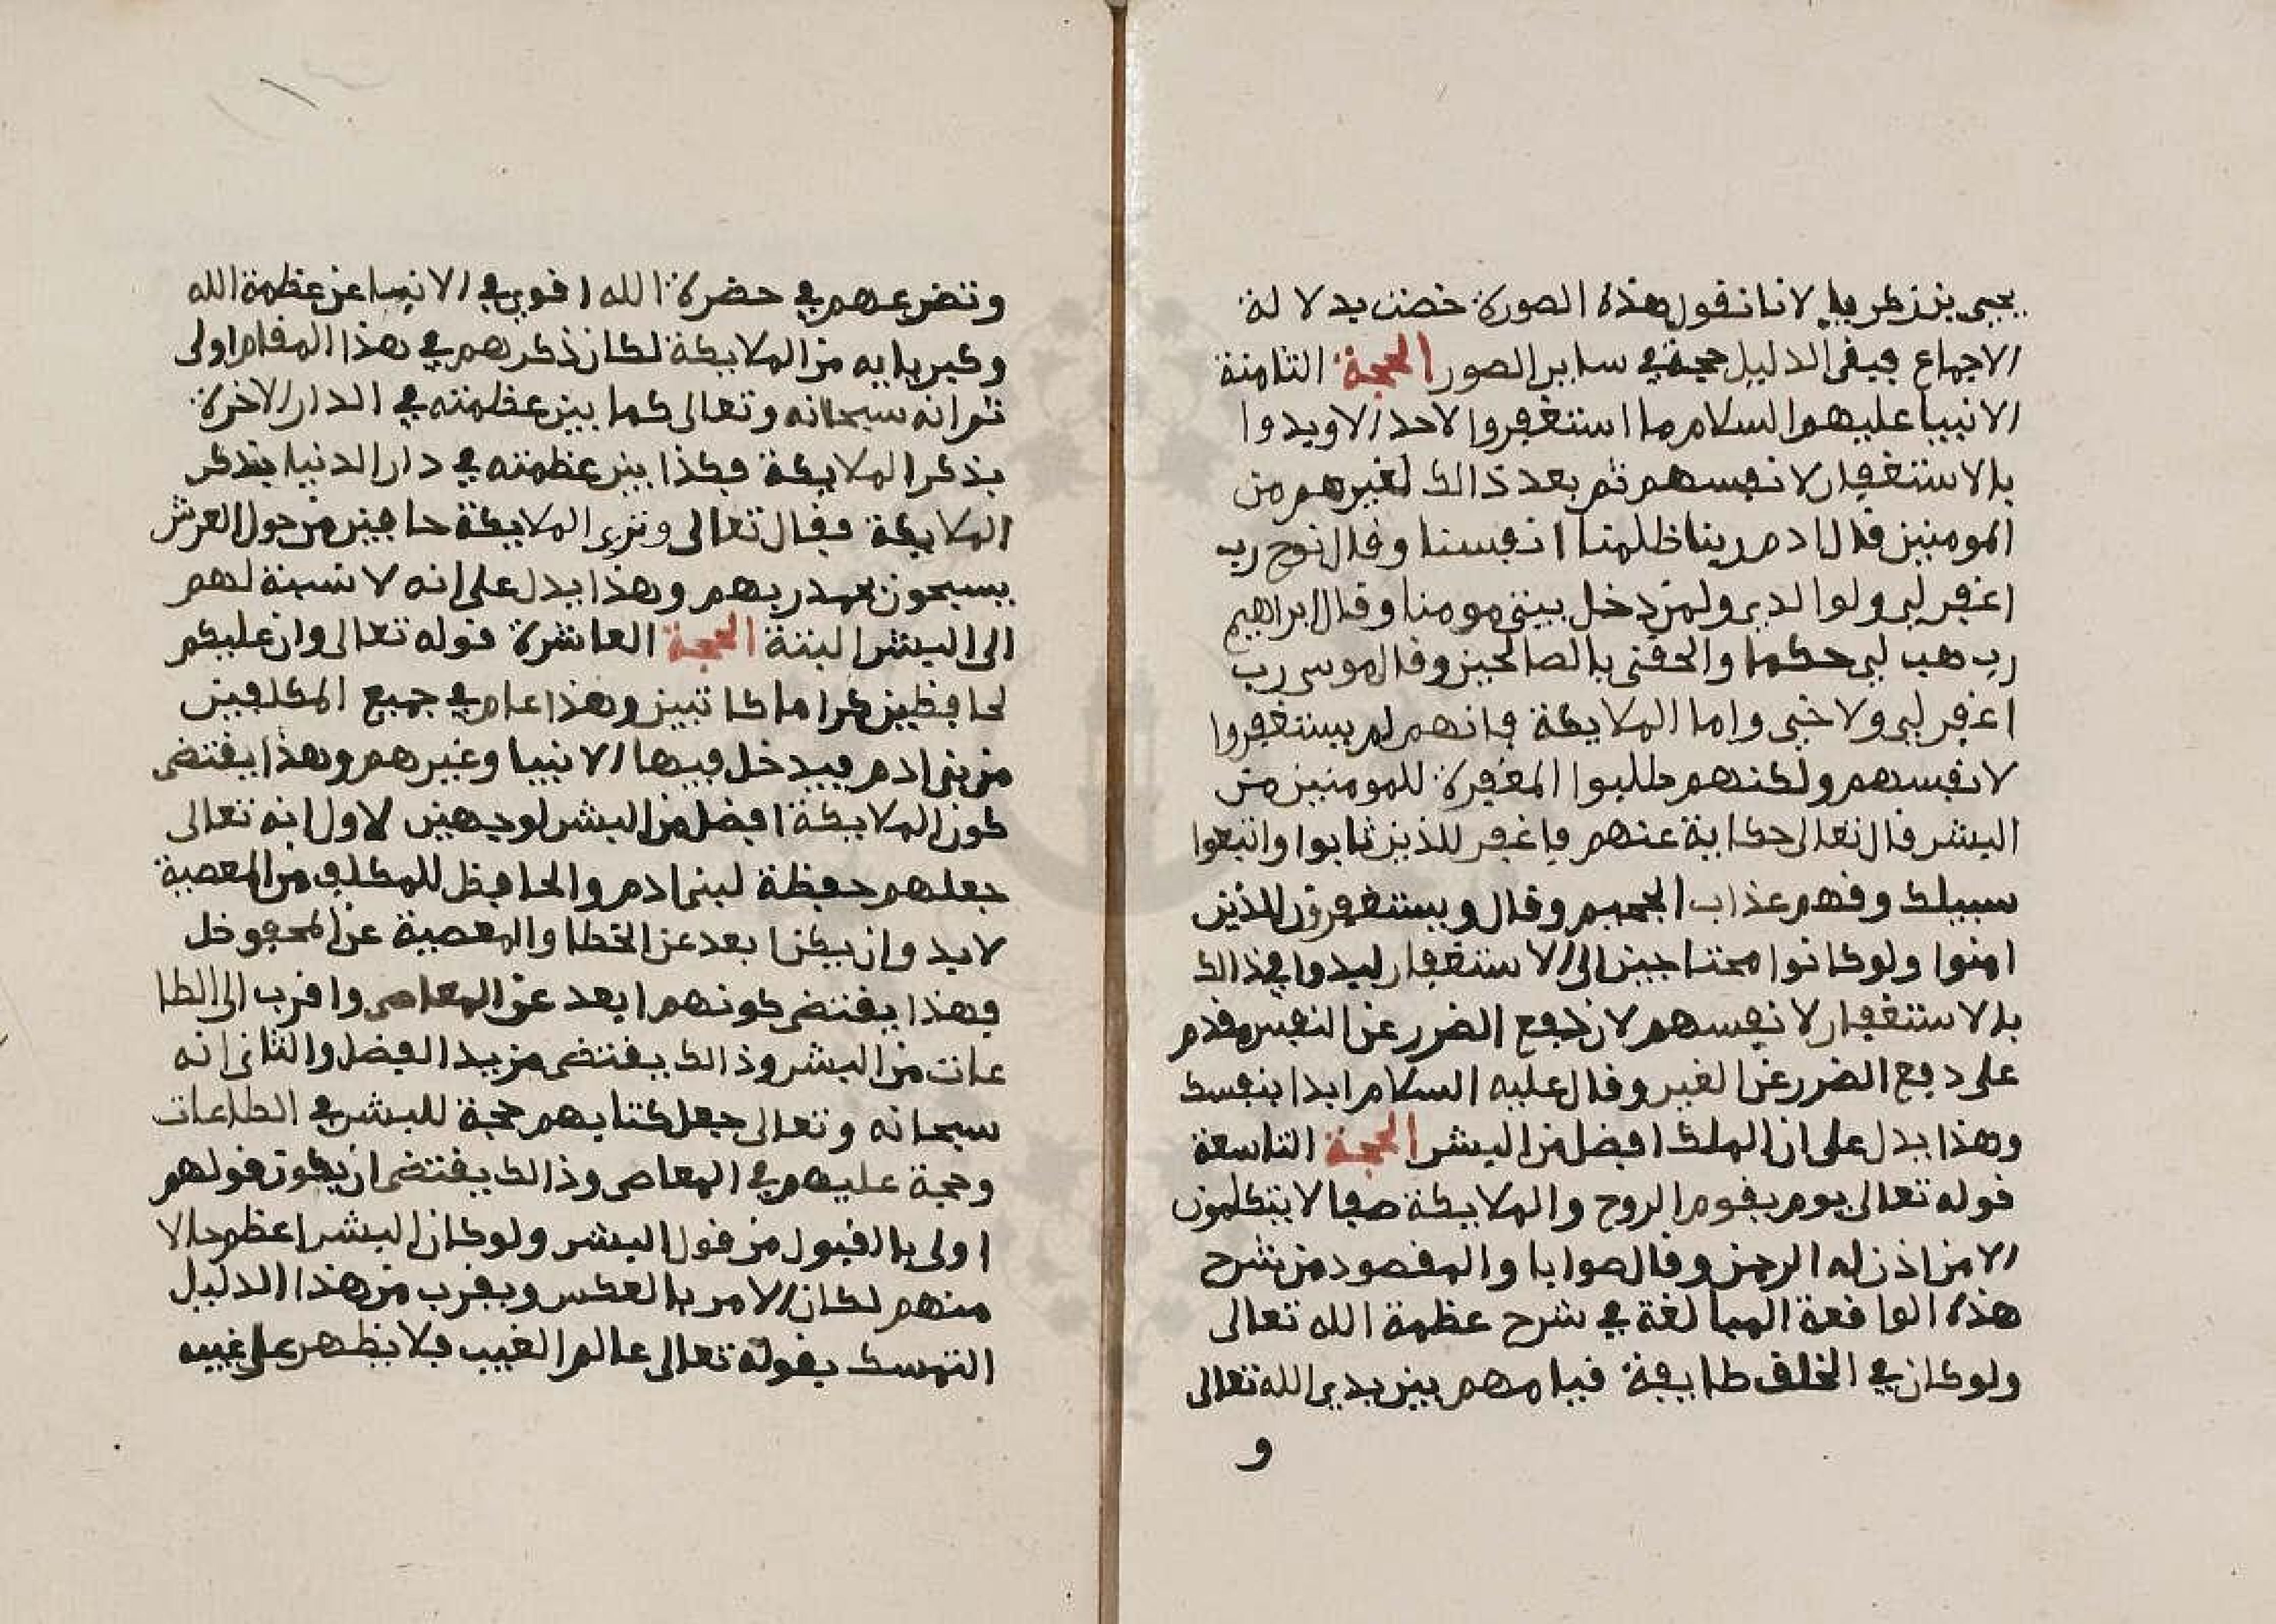 يحيى بن زكريا لانا نقول هذه الصورة خصت بدلالة
الاجماع فيبقى الدليل حجة في ساير الصور الحجة الثامنة
الانبيا عليهم السلام ما استغفروا لاحد الا وبدوا
بالاستغفار لانفسهم ثم بعد ذالك لغيرهم من
المومنين قال ادم ربنا ظلمنا انفسنا وقال نوح رب
اغفر لي ولوالدي ولمن دخل بيتي مومنا وقال ابراهيم
رب هب لي حكما والحقني بالصالحين وقال موسى رب
اغفر لي ولاخي واما الملايكة فانهم لم يستغفروا
لانفسهم ولكنهم طلبوا المغفرة للمومنين من
البشر قال تعالى حكاية عنهم فاغفر للذين تابوا واتبعوا
سبيلك وقهم عذاب الجحيم وقال ويستغفرون للذين
امنوا ولو كانوا محتاجين الى الاستغفار لبدوا في ذالك
بالاستغفار لانفسهم لان دفع الضرر عن النفس مقدم
على دفع الضرر عن الغير وقال عليه السلام ابدا بنفسك
وهذا يدل على ان الملك افضل من البشر الحجة التاسعة
قوله تعالى يوم يقوم الروح والملايكة صفا لا يتكلمون
الا من اذن له الرحمن وقال صوابا والمقصود من شرح
هذه الواقعة المبالغة في شرح عظمة الله تعالى
ولو كان في الخلق طايفة قيامهم بين يدي الله تعالى
و
وتضرعهم في حضرة الله اقوى في الانبيا عن عظمة الله
وكبريايه من الملايكة لكان ذكرهم في هذا المقام اولى
ثم انه سبحانه وتعالى كما بين عظمته في الدار الاخرة
بذكر الملايكة فكذا بين عظمته في دار الدنيا بذكر
الملايكة فقال تعالى وترى الملايكة حافين من حول العرش
يسبحون بحمد ربهم وهذا يدل على انه لا نسبة لهم
الى البشر البتة الحجة العاشرة قوله تعالى وان عليكم
لحافظين كراما كاتبين وهذا عام في جميع المكلفين
من بني ادم فيدخل فيها الانبيا وغيرهم وهذا يقتضى
كون الملايكة افضل من البشر لوجهين لاول انه تعالى
جعلهم حفظة لبني ادم والحافظ للمكلف من المعصية
لابد وان يكن ابعد عن الخطا والمعصية عن المحفوظ
فهذا يقتضى كونهم ابعد عن المعاصى واقرب الى الطا
عات من البشر وذالك يقتضى مزيد الفضل والثانى انه
سبحانه وتعالى جعل كتابهم حجة للبشر في الطاعات
وحجة عليهم في المعاصى وذالك يقتضى ان يكون قولهم
اولى بالقبول من قول البشر ولو كان البشر اعظم حالا
منهم لكان الامر بالعكس ويقرب من هذا الدليل
التمسك بقوله تعالى عالم الغيب فلا يظهر على غيبه